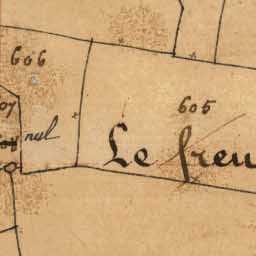 606
605
nul
Le freu